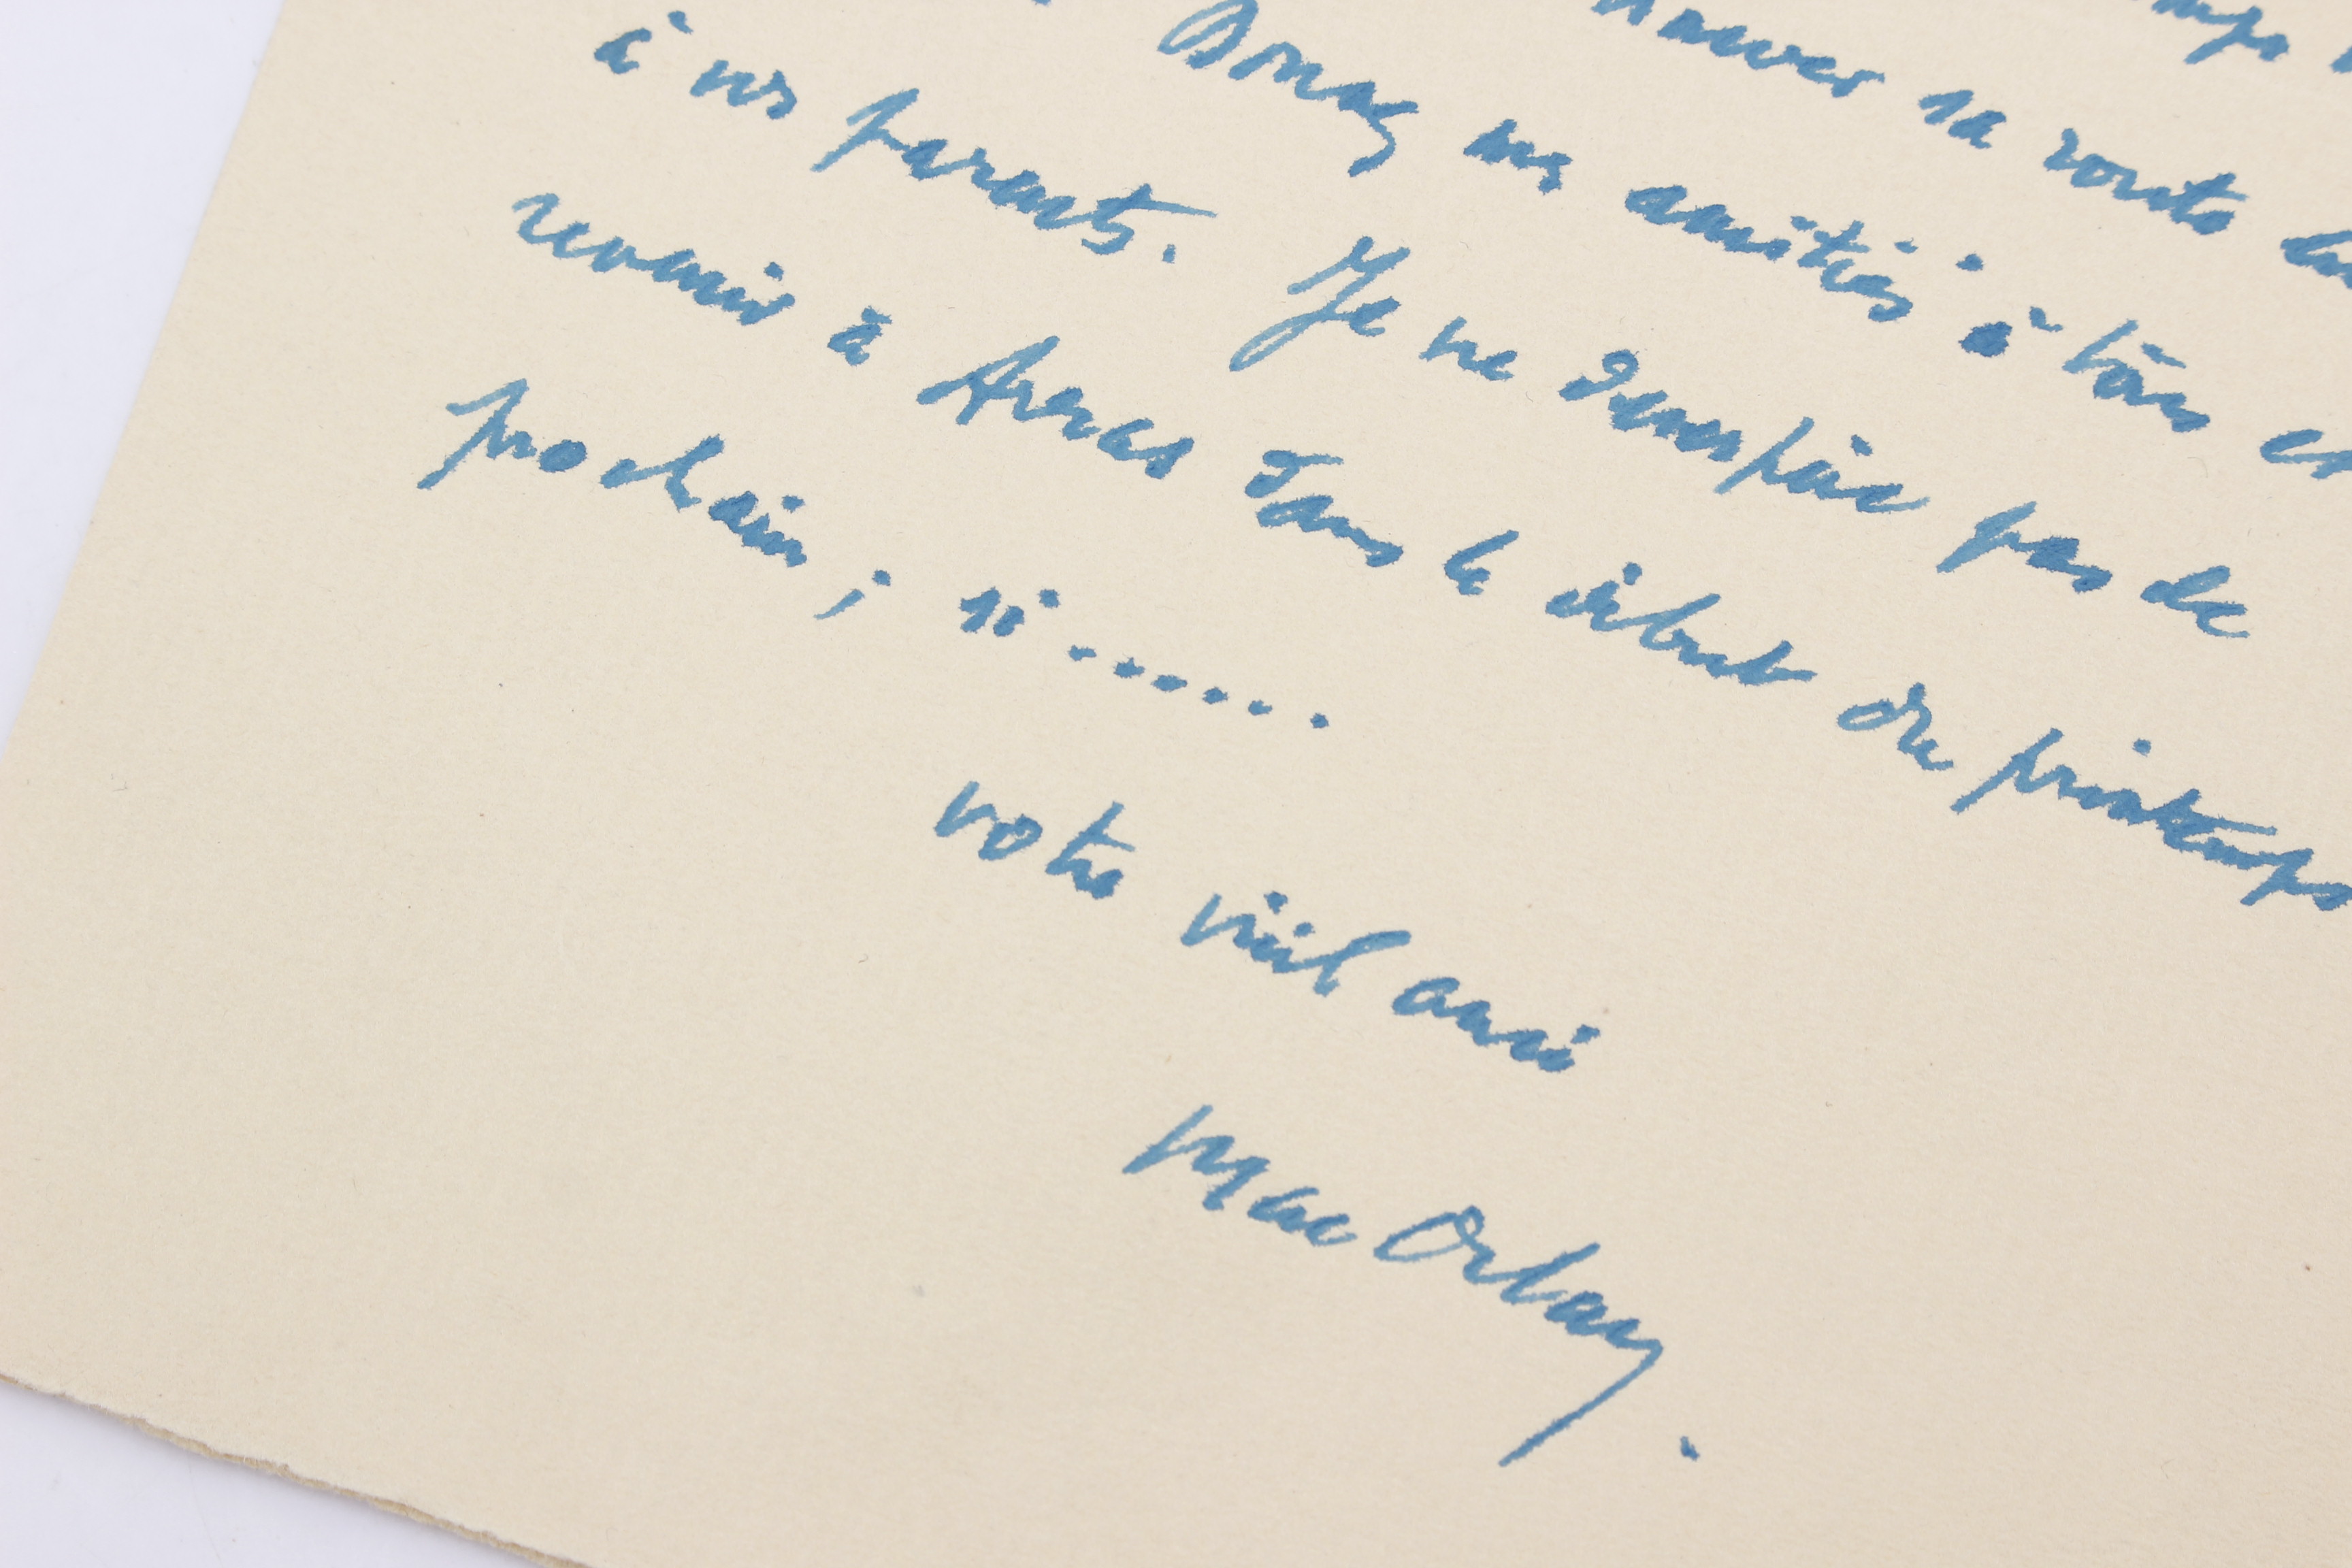 sa route
Donnez mes amitiés à tous et
à vos parents. Je ne desespère pas de
revenir à dans le début du printemps
prochain ; si ......
votre vieil ami
Mac Orlan.